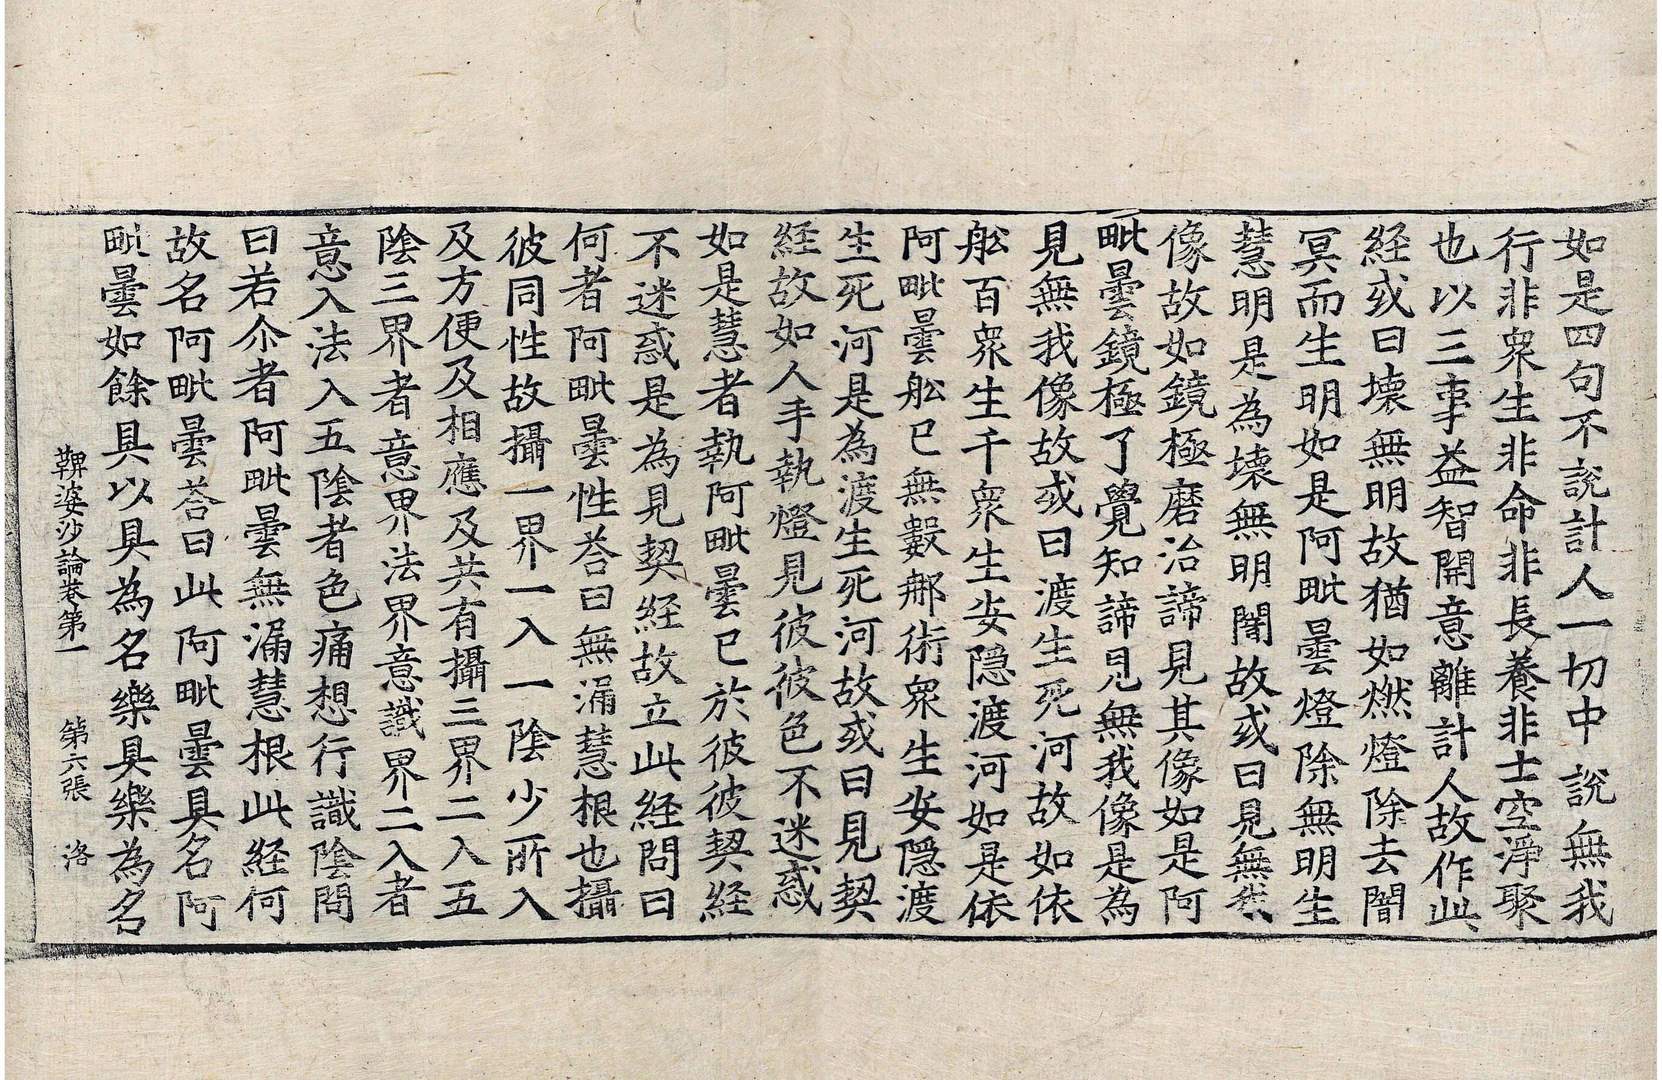 如是四句不說計人一切中說無我
行非衆生非命非長養非士空淨聚
也以三事益智開意離計人故作此
経或曰壊無明故猶如燃燈除去闇
冥而生明如是阿毗曇燈除無明生
慧明是為壊無明闇故或曰見無我
像故如鏡極磨治諦見其像如是阿
毗曇鏡極了覺知諦見無我像是為
見無我像故或曰渡生死河故如依
舩百衆生千衆生安隠渡河如是依
阿毗曇舩已無數那術衆生安隠渡
生死河是為渡生死河故或曰見契
経故如人手執燈見彼彼色不迷惑
如是慧者執阿毗曇已於彼彼契経
不迷惑是為見契経故立此経問曰
何者阿毗曇性荅曰無漏慧根也攝
彼同性故攝一界一入一陰少所入
及方便及相應及共有攝三界二入五
陰三界者意界法界意識界二入者
意入法入五陰者色痛想行識陰問
曰若尒者阿毗曇無漏慧根此経何
故名阿毗曇荅曰此阿毗曇具名阿
毗曇如餘具以具為名樂具樂為名
鞞婆沙論卷第一 第六張 洛